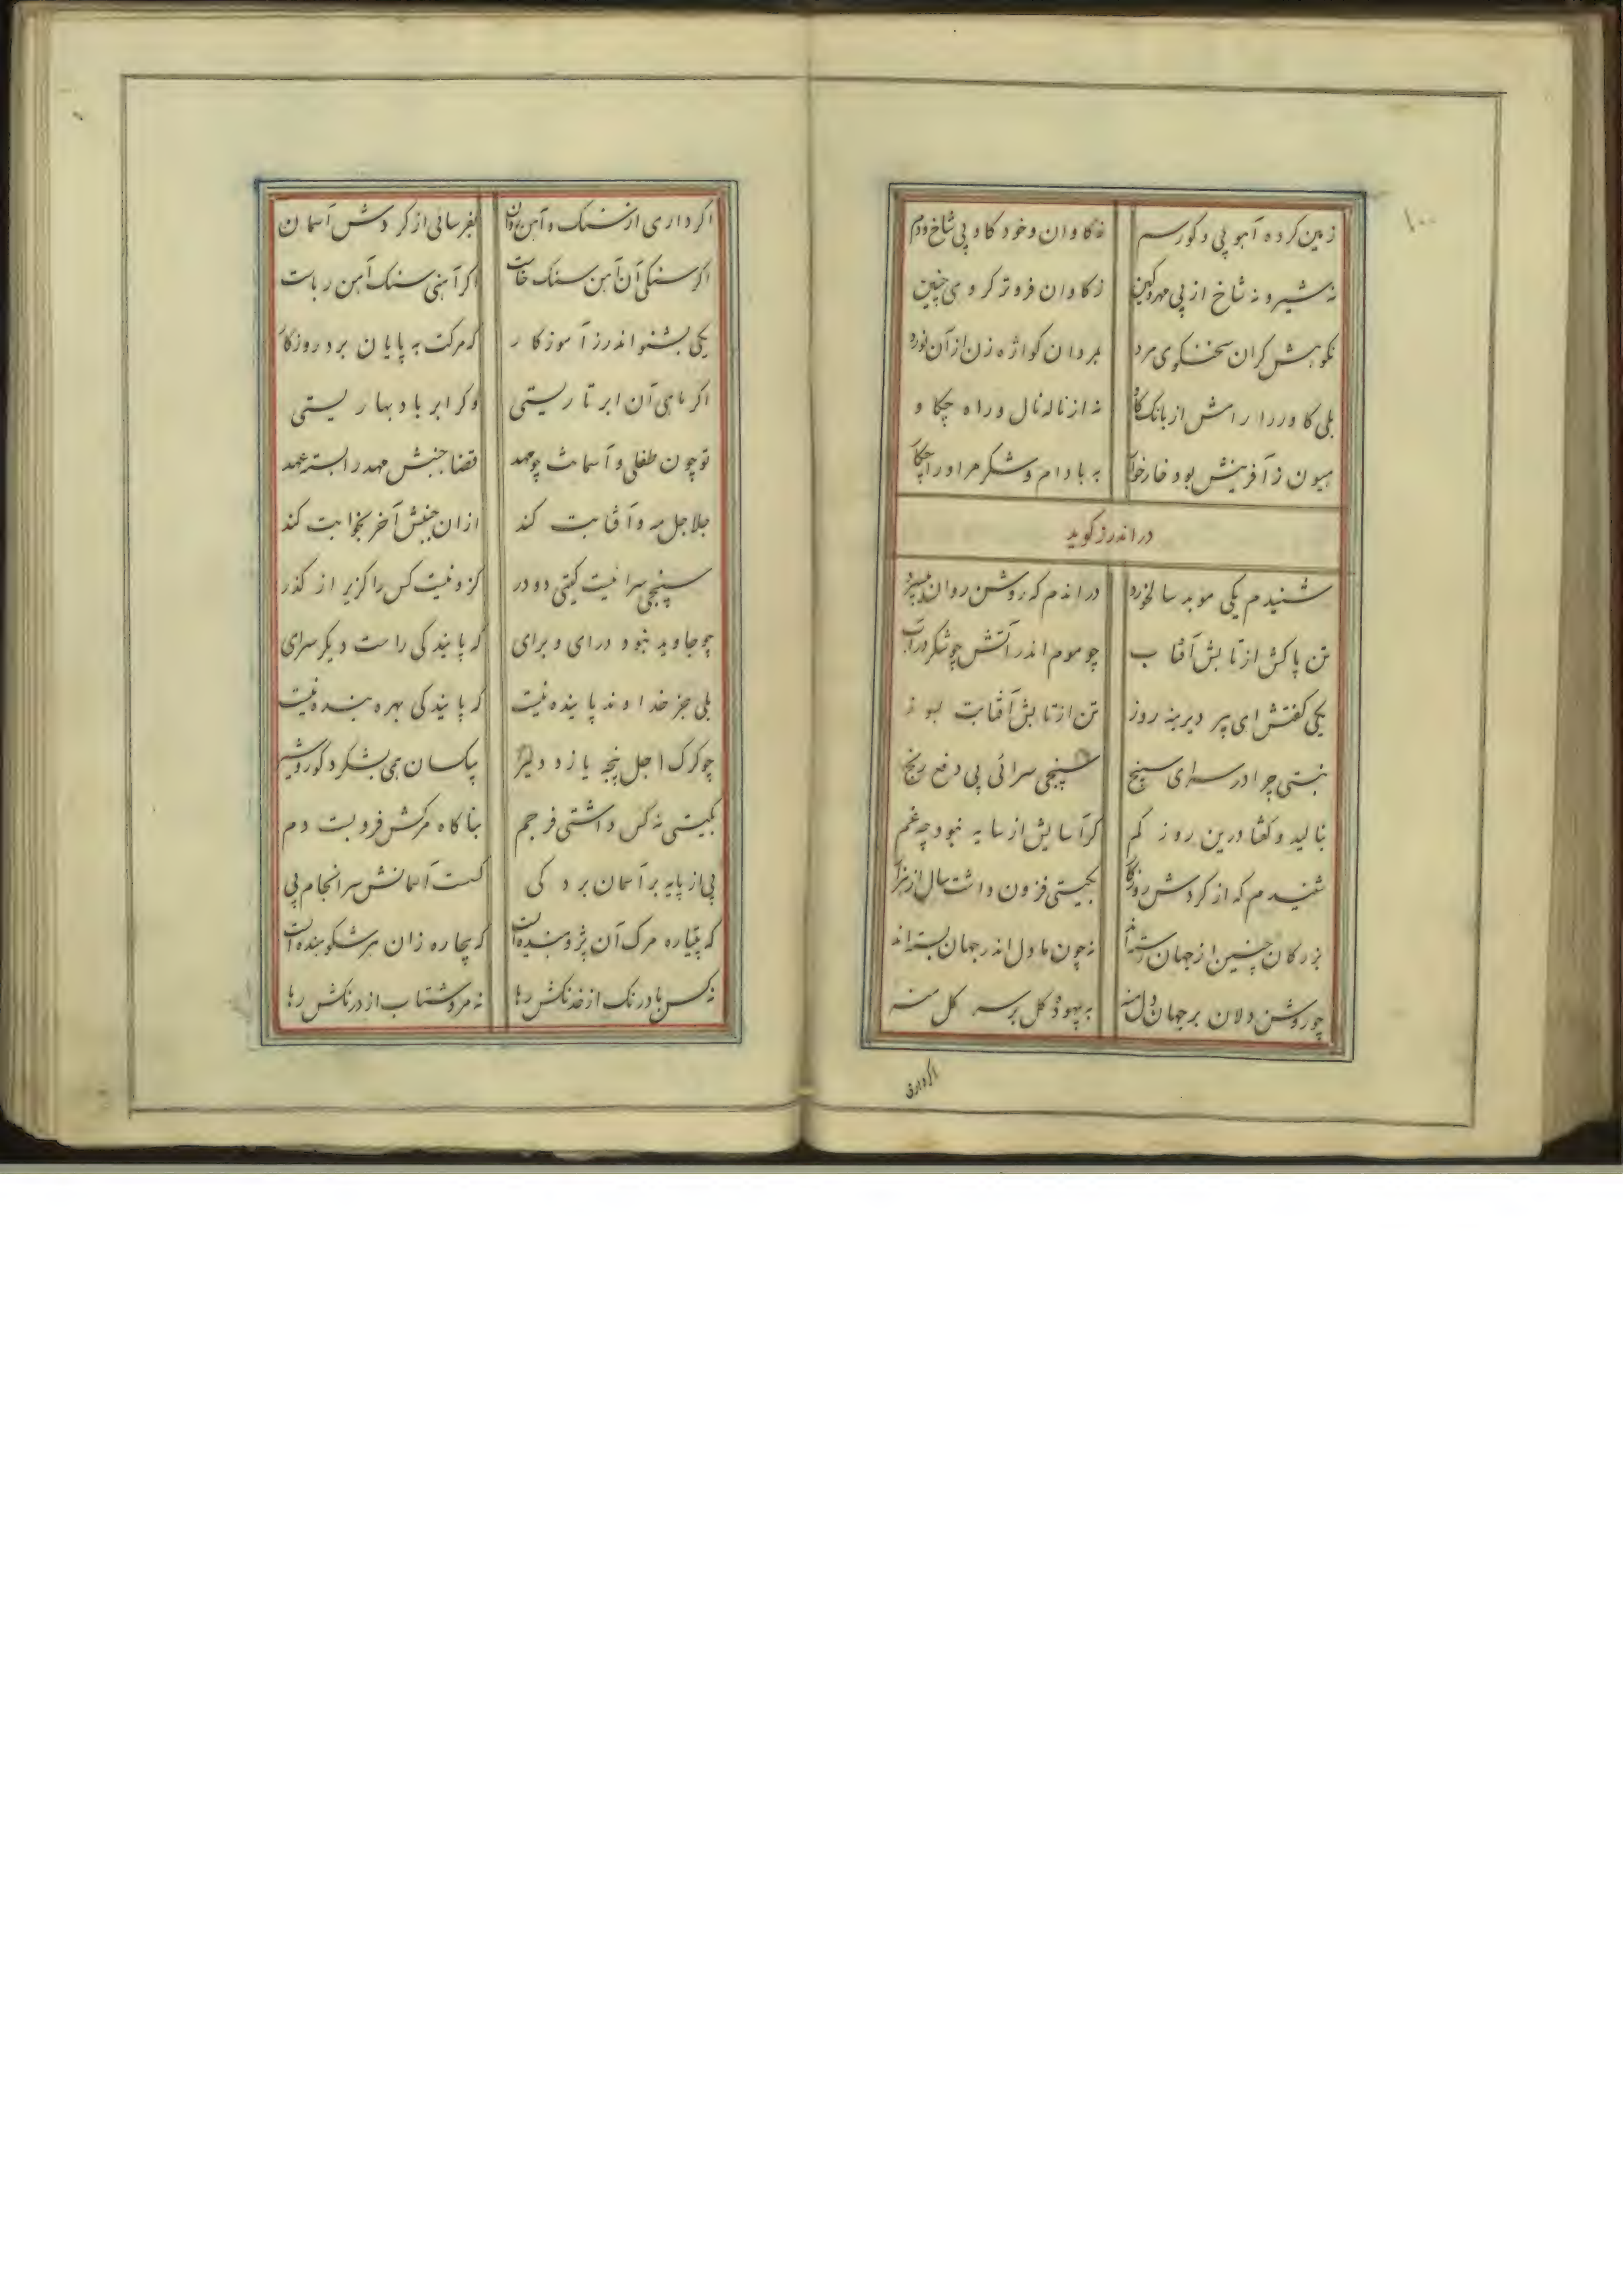 ۱۰۰
زمین کرده آهو پی و کور سم نه کاوان و خود کاو پی شاخ و دم
نه شیر و نه شاخ از پی مهر و کین ز کاوان فروتر کروی چنین
نکوهش کران سخنکوی مرد بمردان کواژه زن از آن نورد
بلی کاو ورا رامش از بانک کاو نه از ناله نال و راه چکاو
هیون ز آفرینش بود خار خوار به بادام و شکر مر او را چکار
در اندرز کوید
شنیدم یکی موبد سالخورد در اندم که روشن روان میسپرد
تن پاکش از تابش آفتاب چو موم اندر آتش چو شکر در آب
یکی کفتش ای پیر دیرینه روز تن از تابش آفتابت بسوز
نبستی چرا در سرای سپنج سپنجی سرائی پی دفع رنج
بنالید و کفتا درین روز کم کر آسایش از سایه نبود چه غم
شنیدم که از کردش روزکار بکیتی فزون داشت سال از هزار
بزرکان چنین از جهان رسته اند نه چون ما دل اندر جهان بسته اند
چو روشن دلان بر جهان دل منه به بیهوده کل بر سر کل منه
اکر داری
اکر داری از سنک و آهن روان بفرسائی از کردش آسمان
اکر سنکی آن آهن سنک خاست اکر آهنی سنک آهن رباست
یکی بشنو اندرز آموزکار که مرکت به پایان برد روزکار
اکر ماهی آن ابر تاریستی وکر ابر باد بهاریستی
تو چون طفلی و آسمانت چو مهد قضا جنبش مهد را بسته عهد
جلاجل مه و آفتابت کند ازان جنبش آخر بخوابت کند
سپنجی سرائیست کیتی دو در کزو نیست کس را کزیر از کذر
چو جاوید نبود درای و برای که پایندکی راست دیکر سرای
بلی جز خداوند پاینده نیست که پایندکی بهره بنده نیست
چو کرک اجل پنجه یازد دلیر یکسان همی بشکرد کور و شیر
بکیتی نه کس داشتی فر جم بناکاه مرکش فرو بست دم
پی از پایه بر آسمان برد کی کسست آسمانش سرانجام پی
که پتیاره مرک آن پژوهنده است که بیچاره زان هر شکوهنده است
نه کس با درنک از خدنکش رها نه مرد شتاب از درنکش رها